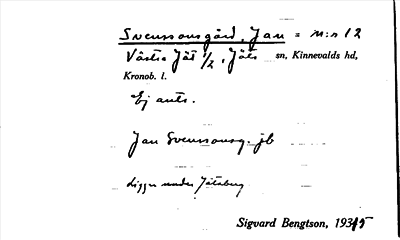 Svenssonsgård, Jan = N:o 12
Västra Jät 1/2, Jäts sn, Kinnevalds hd,
Kronob. l.
Ej ants.
Jan Svenssonsg. jb
Ligger under Jätsberg
Sigvard Bengtson, 1935